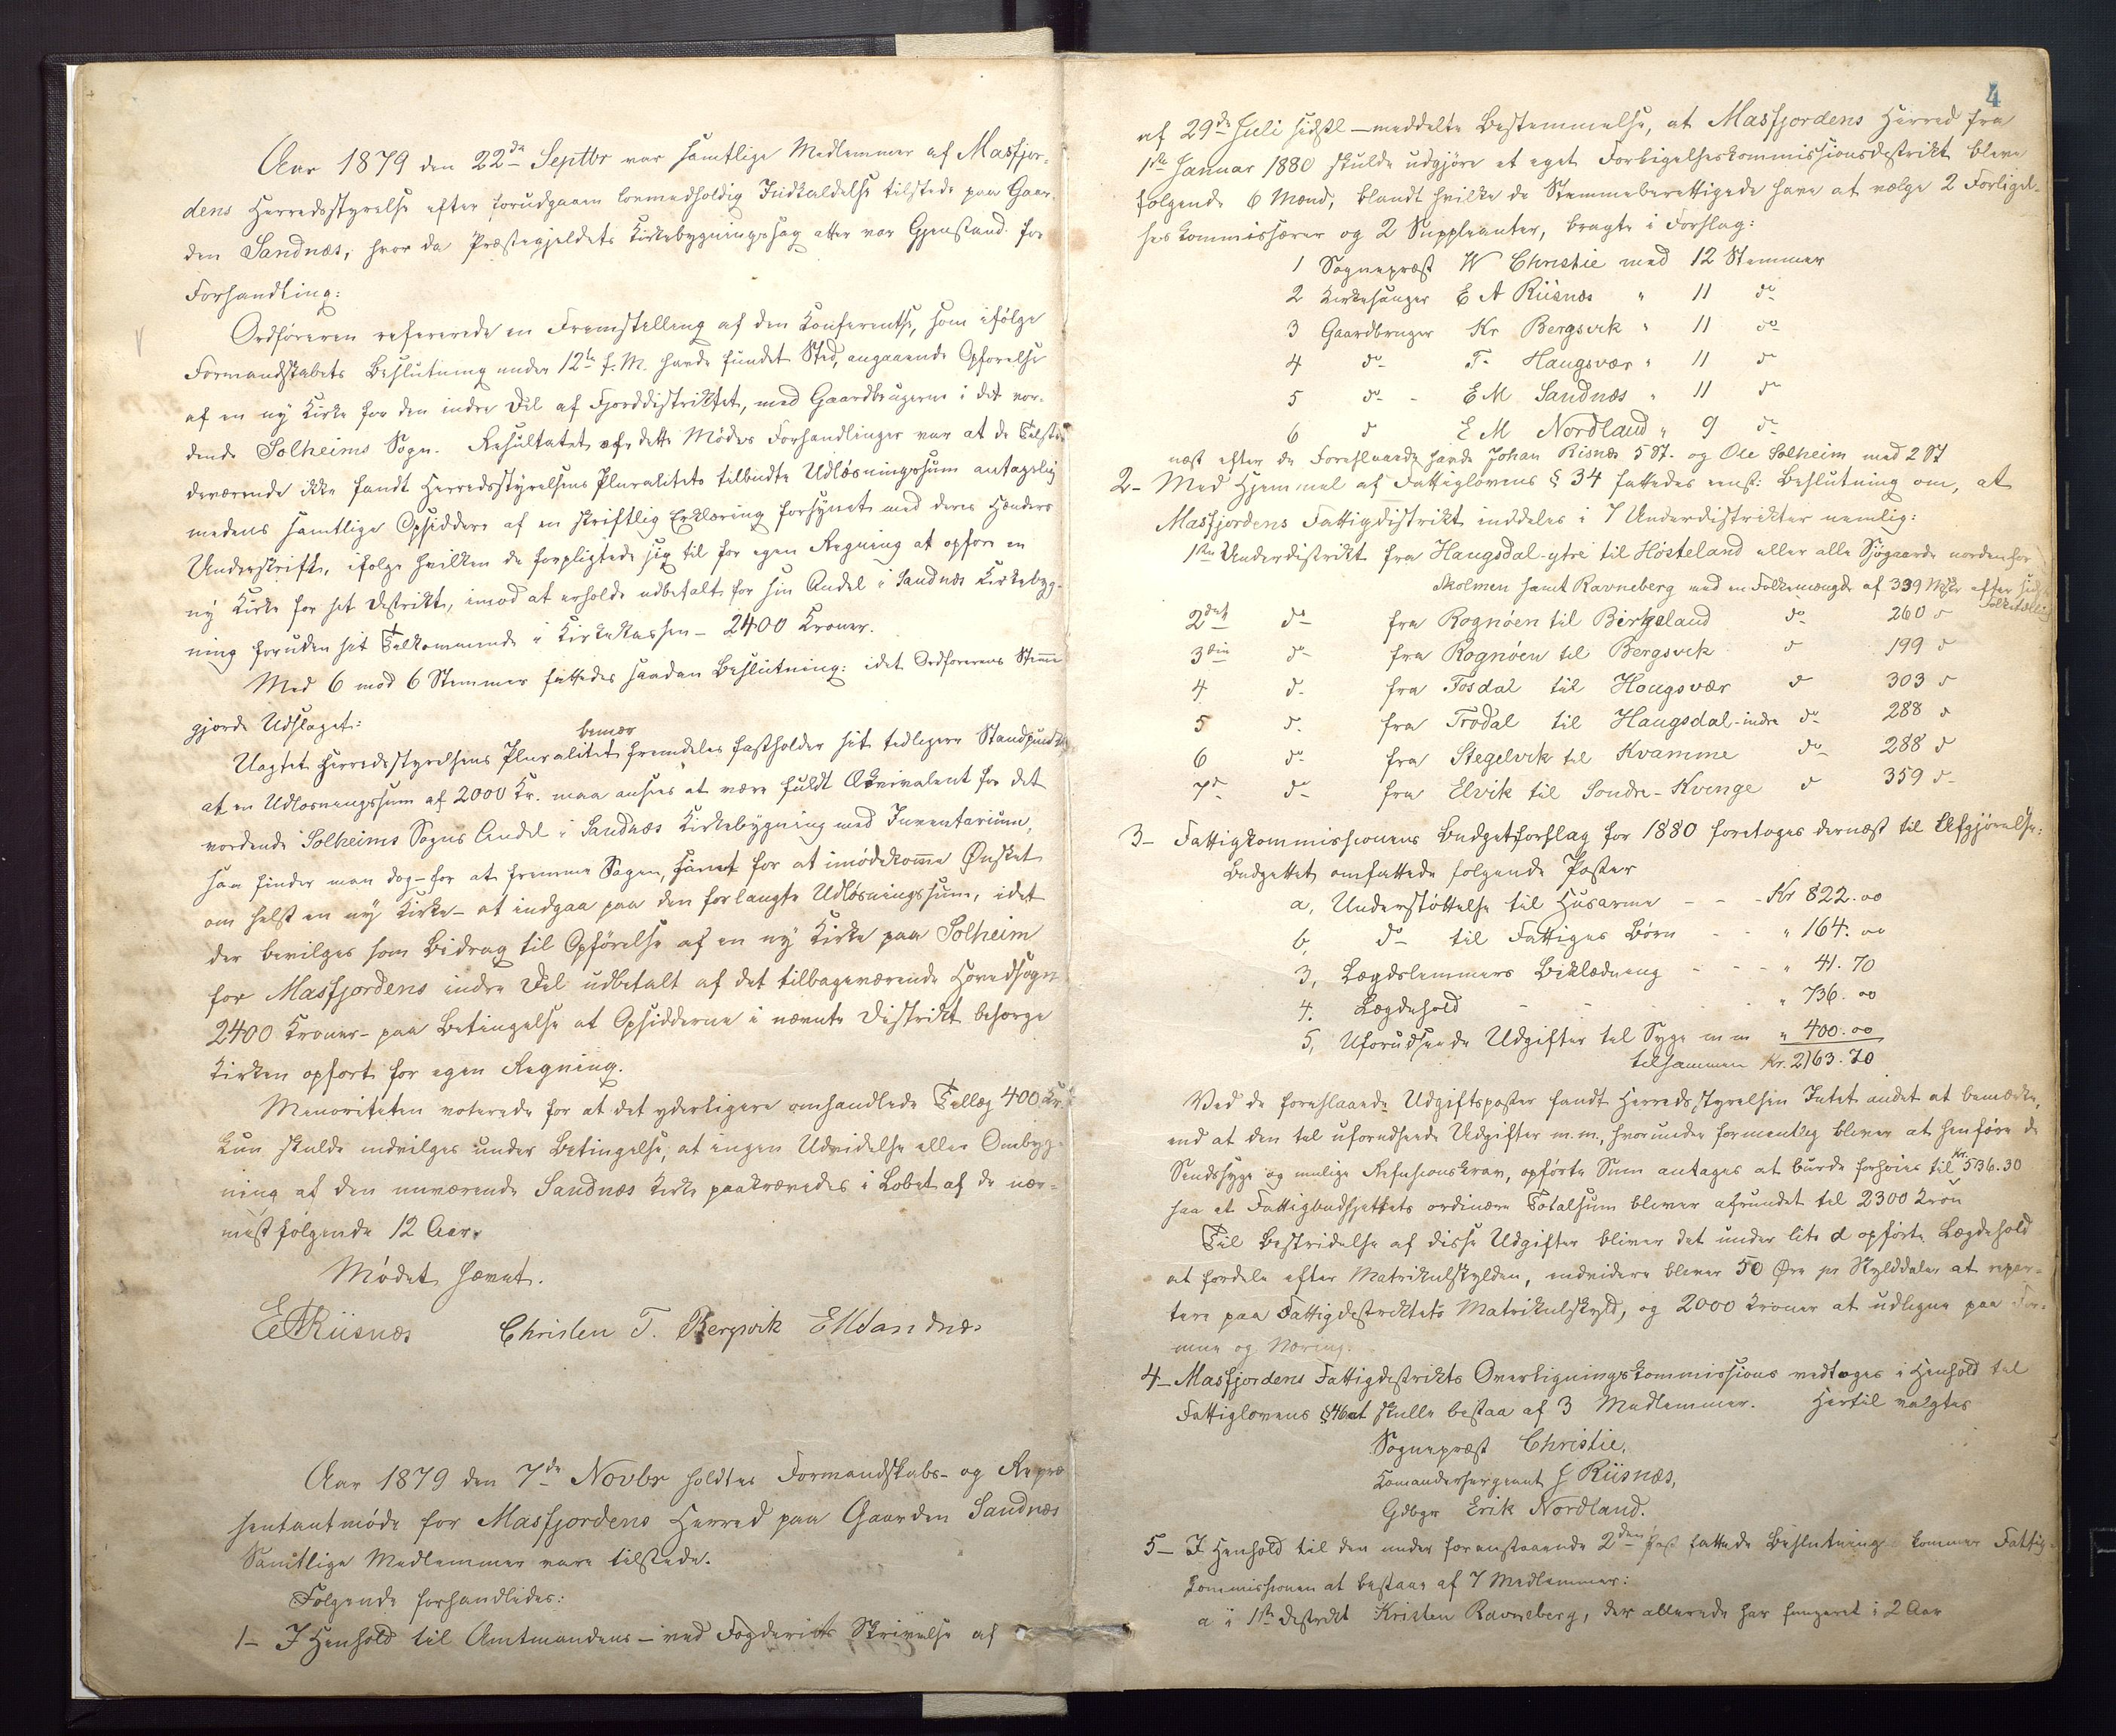 Aar 1879 den 22de Septbr var samtlige Medlemmer af Masfjor-
dens Herredsstyrelse efter forudgaaen lovmedholdig Indkaldelse tilstede paa Gaar-
den Sandnæs, hvor da Præstegjeldets Kirkebygningssag atter var Gjenstand for
Forhandling:
Ordføreren refererede en Fremstilling af den Konferentse, som ifølge
Formandskabets Beslutning under 12te f. M. havde fundet Sted, angaaende Opførelse
af en ny Kirke for den indre Del af Fjorddistriktet, med Gaardbrugerne i det vor-
dende Solheims Sogn. Resultatet af dette Mødes Forhandlinger var at de Tilste-
deværende ikke fandt Herredsstyrelsens Pluralitets tilbudte Udløsningssum antagelig
medens samtlige Opsiddere af en skriftlig Erklæring forsynet med deres Hænders
Underskrift, ifølge hvilken de forpligtede sig til for egen Regning at opføre en
ny Kirke for sit Distrikt, imod at erholde udbetalt for sin Andel i Sandnæs Kirkebyg-
ning foruden sit Tilkommende i Kirkekassen - 2400 Kroner.
Med 6 mod 6 Stemmer fattedes saadan Beslutning: idet Ordførerens Stemme
gjorde Udslaget:
Uagtet Herredsstyrelsens Pluralitet fremdeles fastholder sit tidligere Standpunkt
at en Udløsningssum af 2000 Kr. maa ansees at være fuldt Ækvivalent for det
vordende Solheims Sogns Andel i Sandnæs Kirkebygning med Inventarium,
saa finder man dog - for at fremme Sagen, samt for at imødekomme Ønsket
om helst en ny Kirke - at indgaa paa den forlangte Udløsningssum, idet
der bevilges som Bidrag til Opførelse af en ny Kirke paa Solheim
for Masfjordens indre Del udbetalt af det tilbageværende Hovedsogn
2400 Kroner - paa Betingelse at Opsidderne i nævnte Distrikt besørge
Kirken opført for egen Regning.
Minoriteten voterede for at det yderligere omhandlede Tillæg 400 Kr.
kun skulde indvilges under Betingelse, at ingen Udvidelse eller Ombyg-
ning af den nuværende Sandnæs Kirke paakrævedes i Løbet af de nær-
mest følgende 12 Aar.
Mødet hævet.
E A Riisnæs Christen T. Bergsvik E M Sandnæs
Aar 1879 den 7de Novbr holdtes Formandskabs- og Repræ
sentantmøde for Masfjordens Herred paa Gaarden Sandnæs
Samtlige Medlemmer vare tilstede.
Følgende forhandledes:
1- I Henhold til Amtmandens - ved Fogderiets Skrivelse af
4
af 29de Juli sidstl - meddelte Bestemmelse, at Masfjordens Herred fra
1ste Januar 1880 skulde udgjøre et eget Forligelseskommissionsdistrikt bleve
følgende 6 Mænd, blandt hvilke de Stemmeberettigede have at vælge 2 Forligel-
seskommissærer og 2 Suppleanter, bragte i Forslag:
1 Sognepræst W Christie med 12 Stemmer
2 Kirkesanger E A Riisnæs " 11 do
3 Gaardbruger Kr Bergsvik " 11 do
4 do T. Haugsvær " 11 do
5 do - E M Sandnæs " 11 do
6 do E M Nordland " 9 do
næst efter de Foreslaaede havde Johan Risnæs 5 St. og Ole Solheim med 2 St
2- Med Hjemmel af Fattiglovens § 34 fattedes enst: Beslutning om, at
Masfjordens Fattigdistrikt inddeles i 7 Underdistrikter nemlig:
1ste Underdistrikt fra Haugsdal-ytre til Hosteland eller alle Søgaarde nordenfor
Skolmen samt Ravneberg med en Folkemængde af 339 Msker efter sidste
Folketælling
2det do fra Rognøen til Birkeland do 260 do
3die do fra Rognøen til Bergsvik do 199 do
4 do fra Fosdal til Hougsvær do 303 do
5 do fra Trodal til Haugsdal-indre do 288 do
6 do fra Stegelvik til Kvamme do 288 do
7de do fra Elvik til Søndre-Kvinge do 359 do
3- Fattigkommissionens Budgetforslag for 1880 foretoges dernæst til Afgjørelse:
Budgettet omfattede følgende Poster
a, Understøttelse til Husarme - - - Kr 822.00
b, do til Fattiges Børn - - " 164.00
3, Lægdslemmers Beklædning - - - " 41.70
4. Lægdehold - - - " 736.00
5, Uforudseede Udgifter til Syge m m " 400.00
tilsammen Kr. 2163.70
Ved de foreslaaede Udgiftsposter fandt Herredsstyrelsen Intet andet at bemærke,
end at den til uforudseede Udgifter m.m., hvorunder formentlig bliver at henføre de
Sindssyge og mulige Refusionskrav, opførte Sum antages at burde forhøies til Kr. 536.30
saa at Fattigbudgettets ordinære Totalsum bliver afrundet til 2300 Kron
Til Bestridelse af disse Udgifter bliver det under lits d opførte Lægdehold
at fordele efter Matrikulskylden, endvidere bliver 50 Øre pr Skylddaler at repar-
tere paa Fattigdistriktets Matrikulskyld, og 2000 Kroner at udligne paa For-
mue og Næring.
4- Masfjordens Fattigdistrikts Overligningskommissions vedtoges i Henhold til
Fattiglovens § 46 at skulle bestaa af 3 Medlemmer. Hertil valgtes
Sognepræst Christie,
Komandersergeant J Riisnæs,
Gdbgr Erik Nordland.
5- I Henhold til den under foranstaaende 2den Post fattede Beslutning kommer Fattig-
kommissionen at bestaa af 7 Medlemmer:
a i 1ste Distrikt Kristen Ravneberg, der allerede har fungeret i 2 Aar